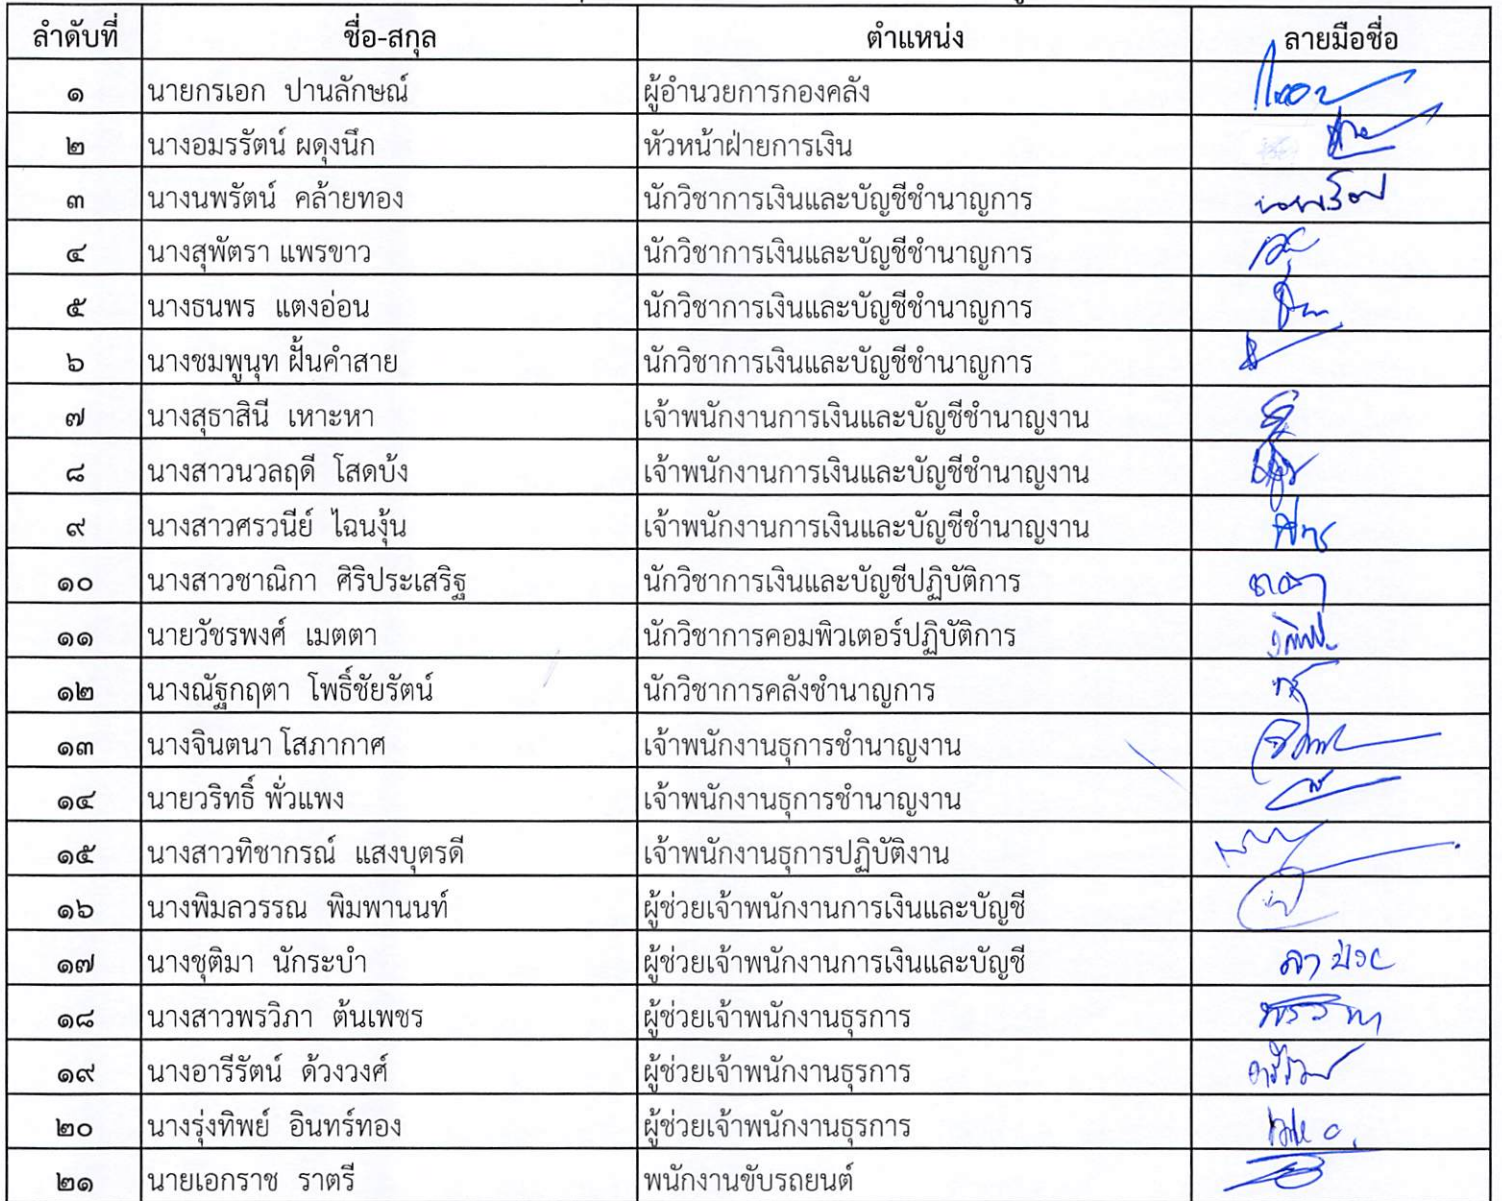 ลำดับที่ ชื่อ-สกุล ตำแหน่ง ลายมือชื่อ
๑ นายกรเอก ปานลักษณ์ ผู้อำนวยการกองคลัง
๒ นางอมรรัตน์ ผดุงนึก หัวหน้าฝ่ายการเงิน
๓ นางนพรัตน์ คล้ายทอง นักวิชาการเงินและบัญชีชำนาญการ
๔ นางสุพัตรา แพรขาว นักวิชาการเงินและบัญชีชำนาญการ
๕ นางธนพร แตงอ่อน นักวิชาการเงินและบัญชีชำนาญการ
๖ นางชมพูนุท ฝั้นคำสาย นักวิชาการเงินและบัญชีชำนาญการ
๗ นางสุธาสินี เหาะหา เจ้าพนักงานการเงินและบัญชีชำนาญงาน
๘ นางสาวนวลฤดี โสดบ้ง เจ้าพนักงานการเงินและบัญชีชำนาญงาน
๙ นางสาวศรวนีย์ ไฉนงุ้น เจ้าพนักงานการเงินและบัญชีชำนาญงาน
๑๐ นางสาวชาณิกา ศิริประเสริฐ นักวิชาการเงินและบัญชีปฏิบัติการ
๑๑ นายวัชรพงศ์ เมตตา นักวิชาการคอมพิวเตอร์ปฏิบัติการ
๑๒ นางณัฐกฤตา โพธิ์ชัยรัตน์ นักวิชาการคลังชำนาญการ
๑๓ นางจินตนา โสภากาศ เจ้าพนักงานธุการชำนาญงาน
๑๔ นายวริทธิ์ พั่วแพง เจ้าพนักงานธุการชำนาญงาน
๑๕ นางสาวทิชากรณ์ แสงบุตรดี เจ้าพนักงานธุการปฏิบัติงาน
๑๖ นางพิมลวรรณ พิมพานนท์ ผู้ช่วยเจ้าพนักงานการเงินและบัญชี
๑๗ นางชุติมา นักระบำ ผู้ช่วยเจ้าพนักงานการเงินและบัญชี
๑๘ นางสาวพรวิภา ต้นเพชร ผู้ช่วยเจ้าพนักงานธุรการ
๑๙ นางอารีรัตน์ ด้วงวงศ์ ผู้ช่วยเจ้าพนักงานธุรการ
๒๐ นางรุ่งทิพย์ อินทร์ทอง ผู้ช่วยเจ้าพนักงานธุรการ
๒๑ นายเอกราช ราตรี พนักงานขับรถยนต์